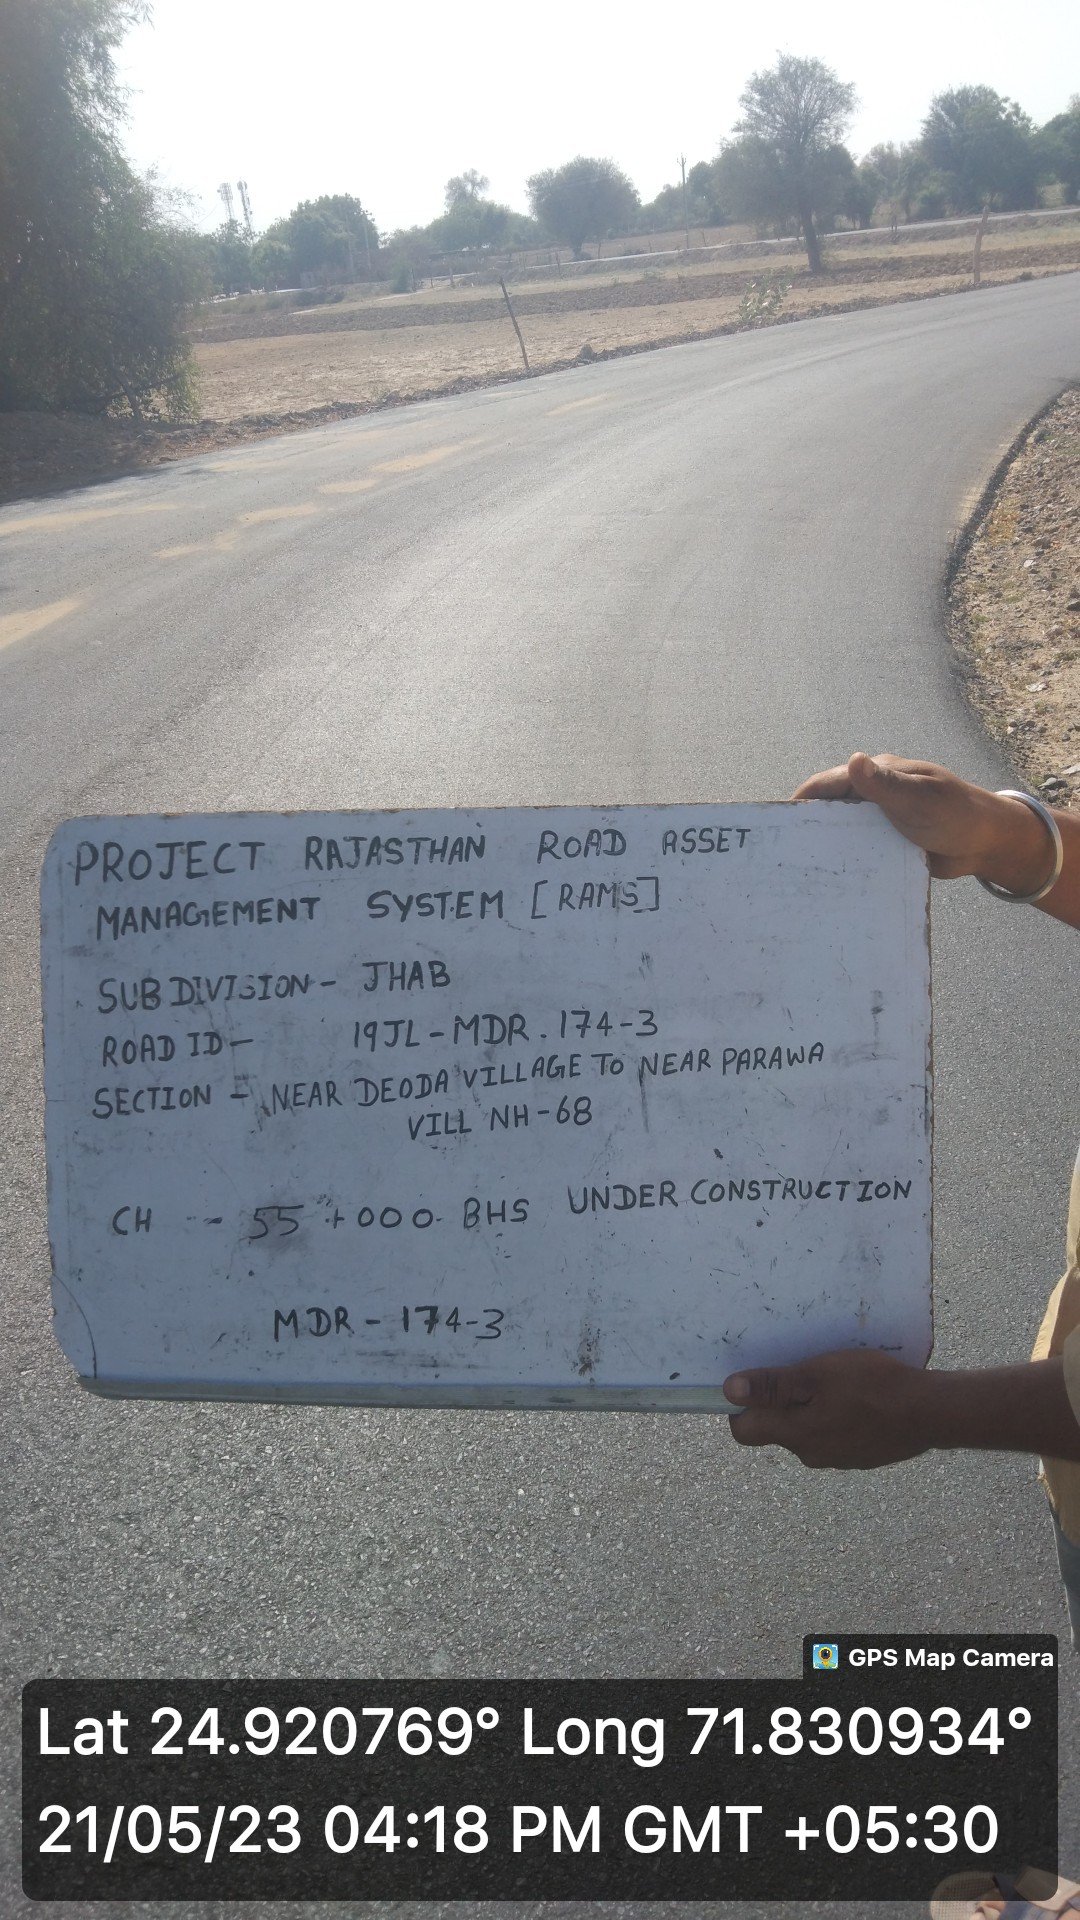 PROJECT RAJASTHAN ROAD ASSET
MANAGEMENT SYSTEM [RAMS]
SUB DIVISION - JHAB
ROAD ID - 19JL-MDR.174-3
SECTION - NEAR DEODA VILLAGE TO NEAR PARAWA
VILL NH-68
CH - 55+000 BHS UNDER CONSTRUCTION
MDR - 174-3
GPS Map Camera
Lat 24.920769° Long 71.830934°
21/05/23 04:18 PM GMT +05:30